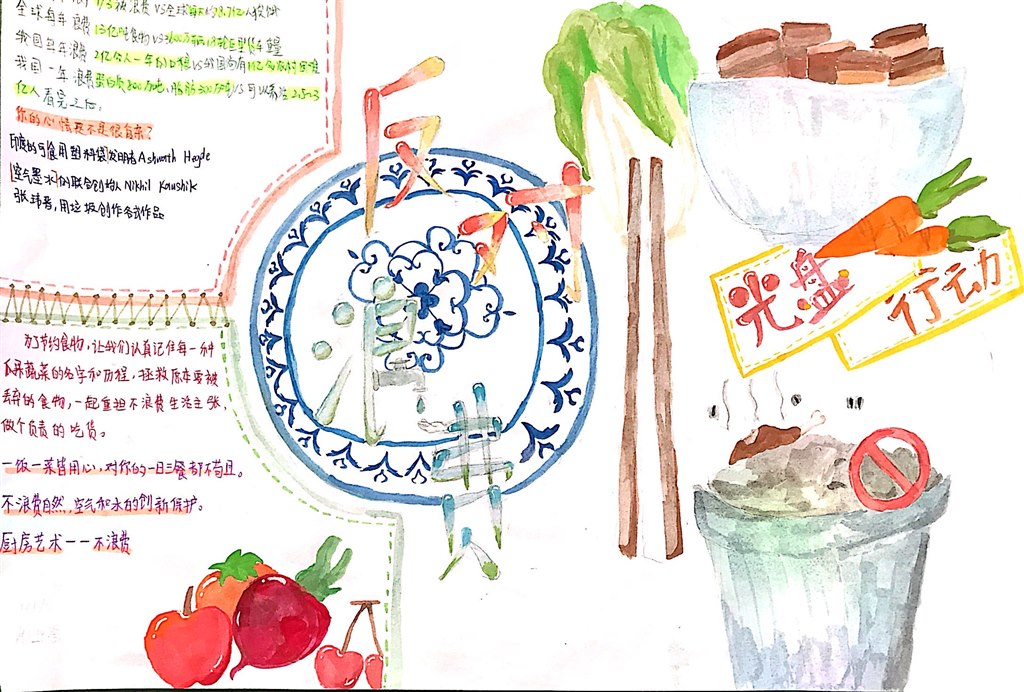 1/3被浪费 VS 全球
全球每年浪费13亿吨食物 VS
我国每年浪费2亿多人一年的口粮 VS 我国尚有1亿多农村
我国一年浪费蛋白质800万吨，脂肪300万吨 VS 可以养活2.5-3
亿人看完之后。
你的心情是不是很自责？
印度的可食用塑料袋发明者Ashwath Hegde
[空气墨水]的联合创始人Nikhil Kaushik
张玮晋，用垃圾创作各式作品
为了节约食物，让我们认真记住每一种
瓜果蔬菜的名字和历程，拯救原本要被
丢弃的食物，一起重拾不浪费生活主张，
做个负责的吃货。
一饭一菜皆用心，对你的一日三餐都不苟且。
不浪费自然，空气和水的创新保护。
厨房艺术——不浪费
反对
浪费
光盘
行动